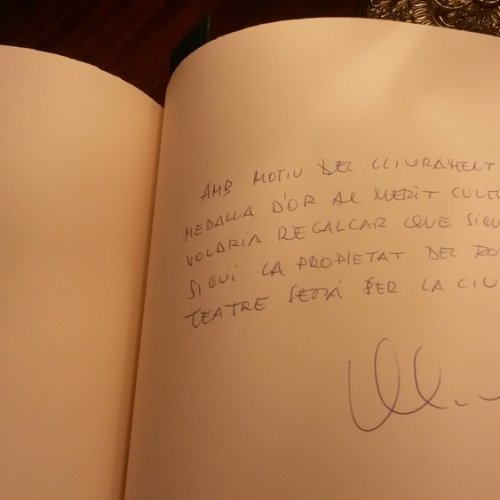 AMB MOTIU DEL LLIURAMENT
MEDALLA D'OR AL MERIT
VOLDRIA REGALCAR QUE
SIGUI LA PROPIETAT DEL
TEATRE SERÀ PER LA